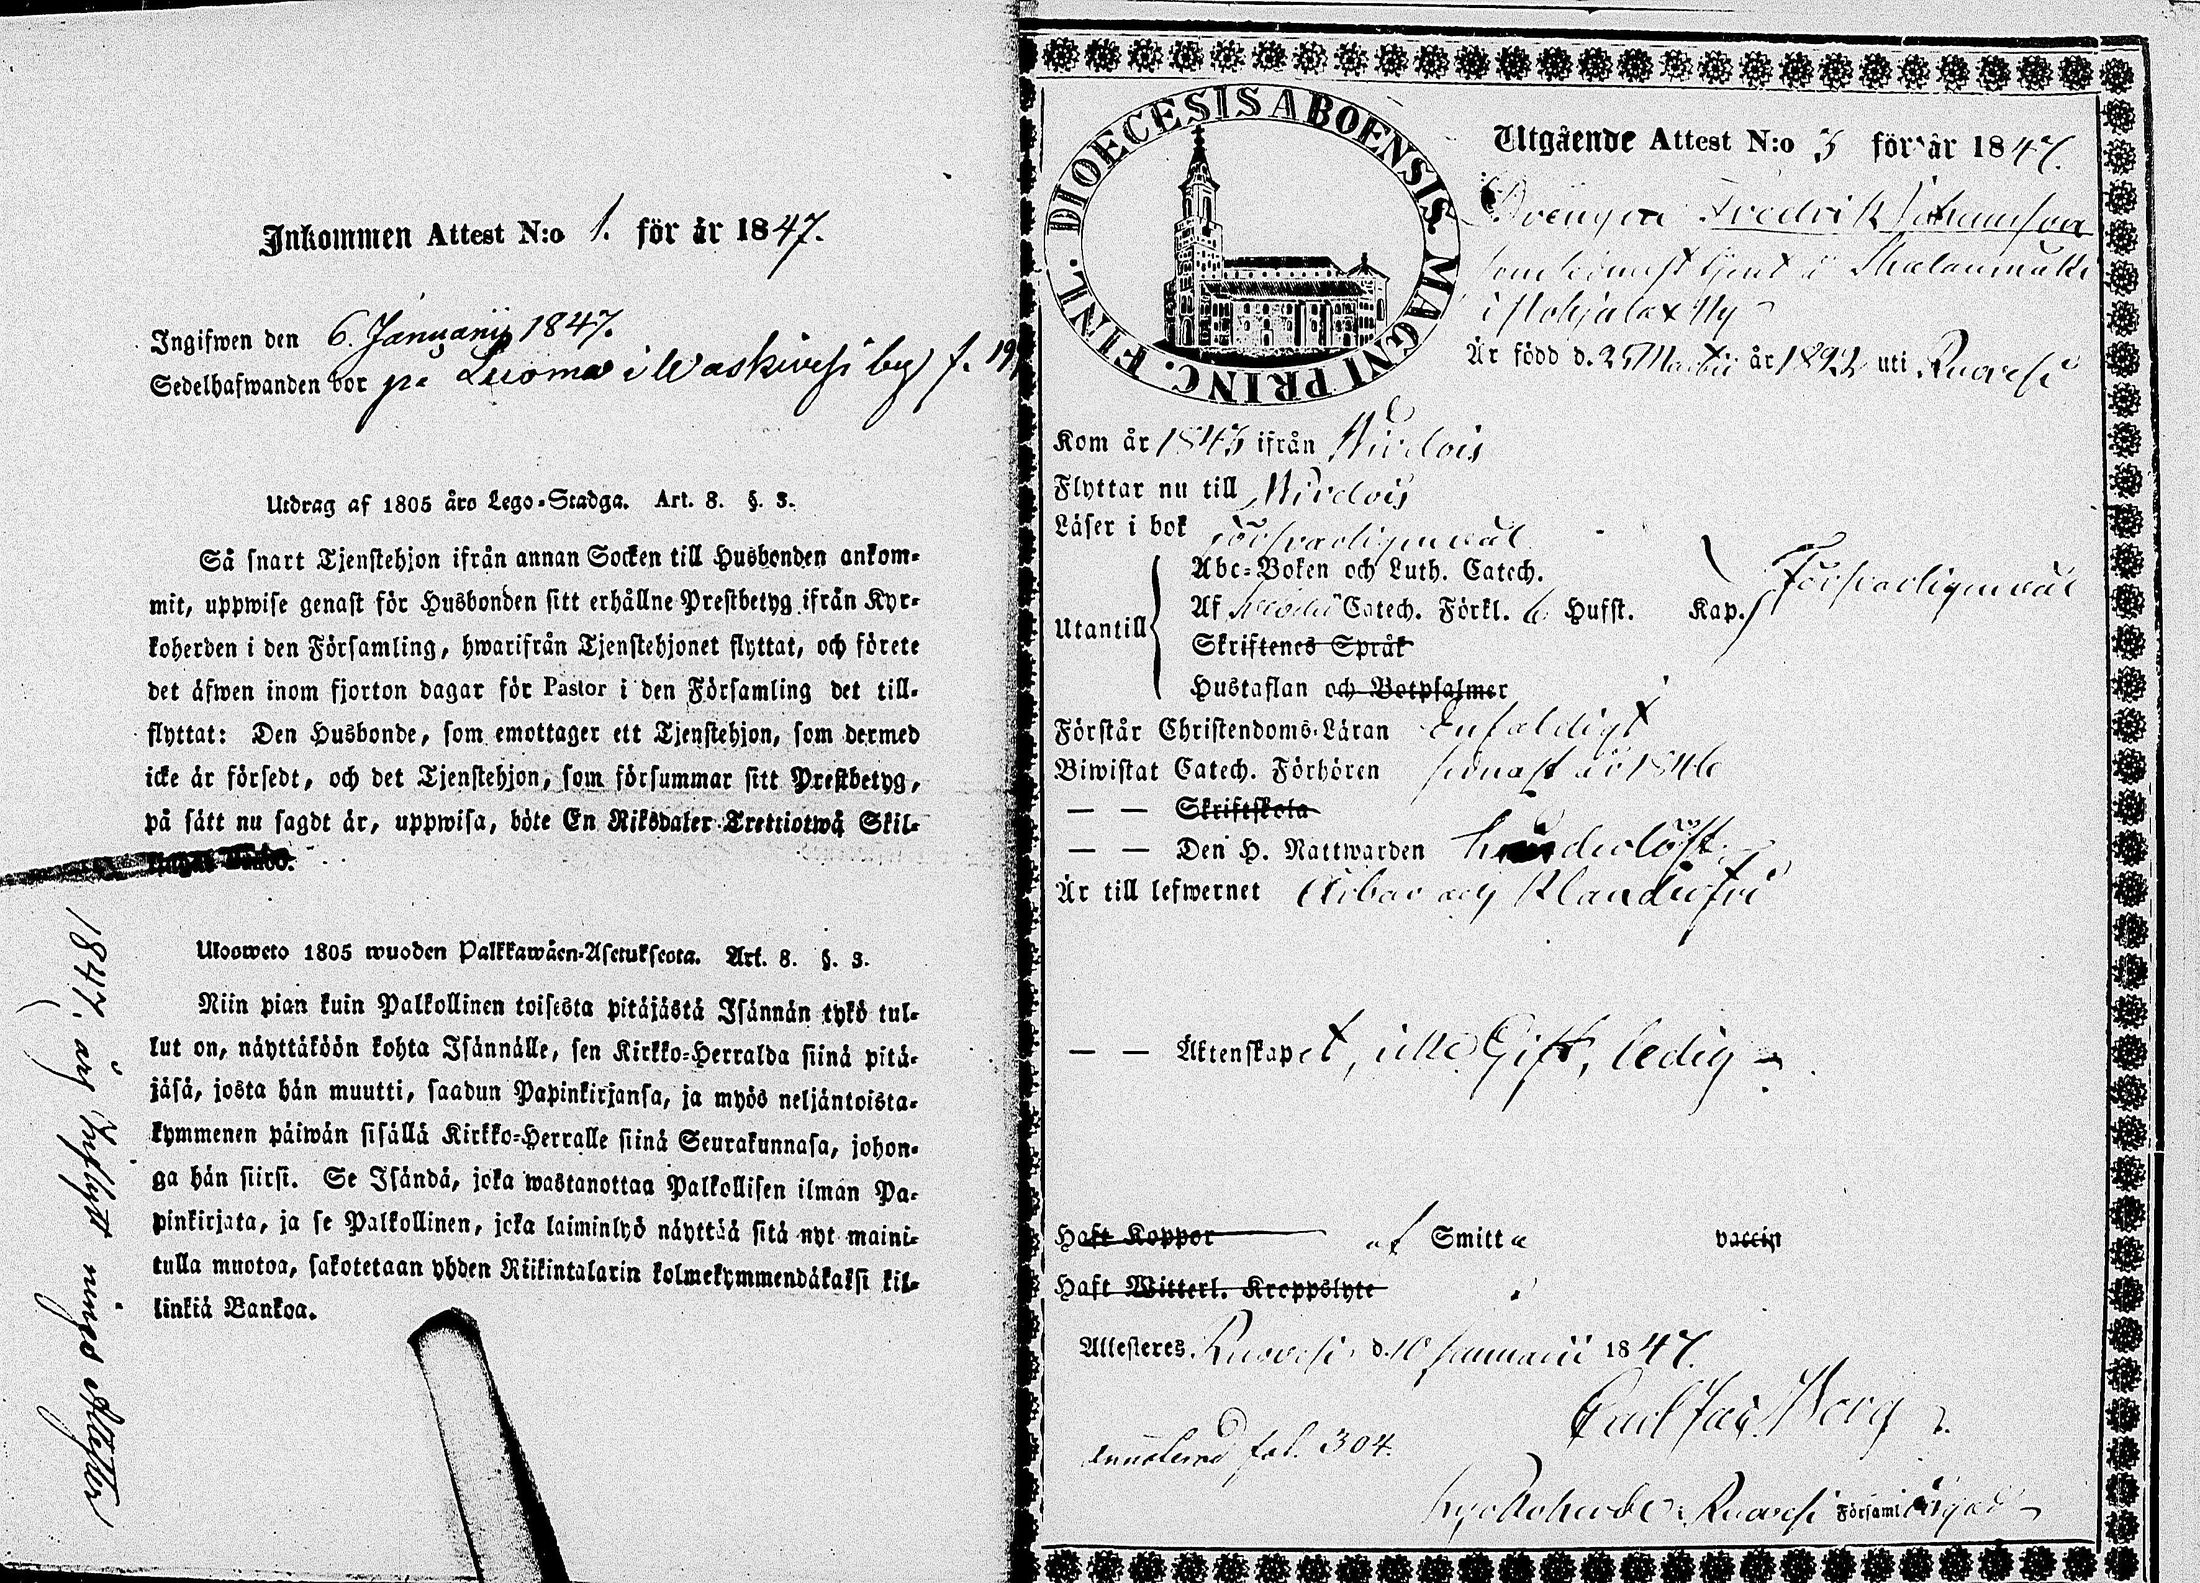 Inkommen Attest N:o 1. för år 1847.
Ingifwen den 6. Januarii 1847.
Sedelhafwanden bor på Luoma i Waskivesi by f. 19
Utdrag af 1805 års Lego-Stadga. Art. 8. §. 3.
Så snart Tjenstehjon ifrån annan Socken till Husbonden ankom-
mit, uppwise genast för Husbonden sitt erhållne Prestbetyg ifrån Kyr-
koherden i den Församling, hwarifrån Tjenstehjonet flyttat, och förete
det äfwen inom fjorton dagar för Pastor i den Församling det till-
flyttat: Den Husbonde, som emottager ett Tjenstehjon, som dermed
icke är försedt, och det Tjenstehjon, som försummar sitt Prestbetyg,
på sätt nu sagdt är, uppwisa, böte En Riksdaler Trettiotwå Skil-
lingar Banco.
Ulosweto 1805 wuoden Palkkawäen-Asetuksesta. Art. 8. §. 3.
Niin pian kuin Palkollinen toisesta pitäjästä Isännän tykö tul-
lut on, näyttäköön kohta Isännälle, sen Kirkko-Herralda siinä pitä-
jäsä, josta hän muutti, saadun Papinkirjansa, ja myös neljäntoista-
kymmenen päiwän sisällä Kirkko-Herralle siinä Seurakunnasa, johon-
ga hän siirsi. Se Isändä, joka wastanottaa Palkollisen ilman Pa-
pinkirjata, ja se Palkollinen, joka laiminlyö näyttää sitä nyt maini-
tulla muotoa, sakotetaan yhden Riikintalarin kolmekymmendäkaksi kil-
linkiä Bankoa.
1847 års Inflytt nings Attester
DIOECESIS ABOENSIS MAGNI PRINC. FINL.
Utgående Attest N:o 3 för år 1847.
Drängen Fredrik Johansson
som sednast tjent å
i Pohjala
Är född d. 25 Martii år 1822 uti Ruovesi
Kom år 1843 ifrån Wirdois
Flyttar nu till Wirdois
Läser i bok försvarligen väl
Utantill
Abc-Boken och Luth. Catech.
Af Catech. Förkl. 6 Hufst. Kap. Försvarligen väl
Skriftenes Språk
Hustaflan och Botpsalmer
Förstår Christendoms-Läran Enfaldigt
Biwistat Catech. Förhören senast år 1846
— — Skriftskola
— — Den H. Nattwarden
Är till lefwernet Ärbar och Klanderfri
— — Äktenskapet, icke Gift, ledig
Haft Koppor af Smitta vaccin
Haft Witterl. Kroppslyte
Attesteres. Ruovesi d. 10 Januarii 1847.
Carl Jac. Borg
fol. 304.
Kyrkoherde i Ruovesi Församl